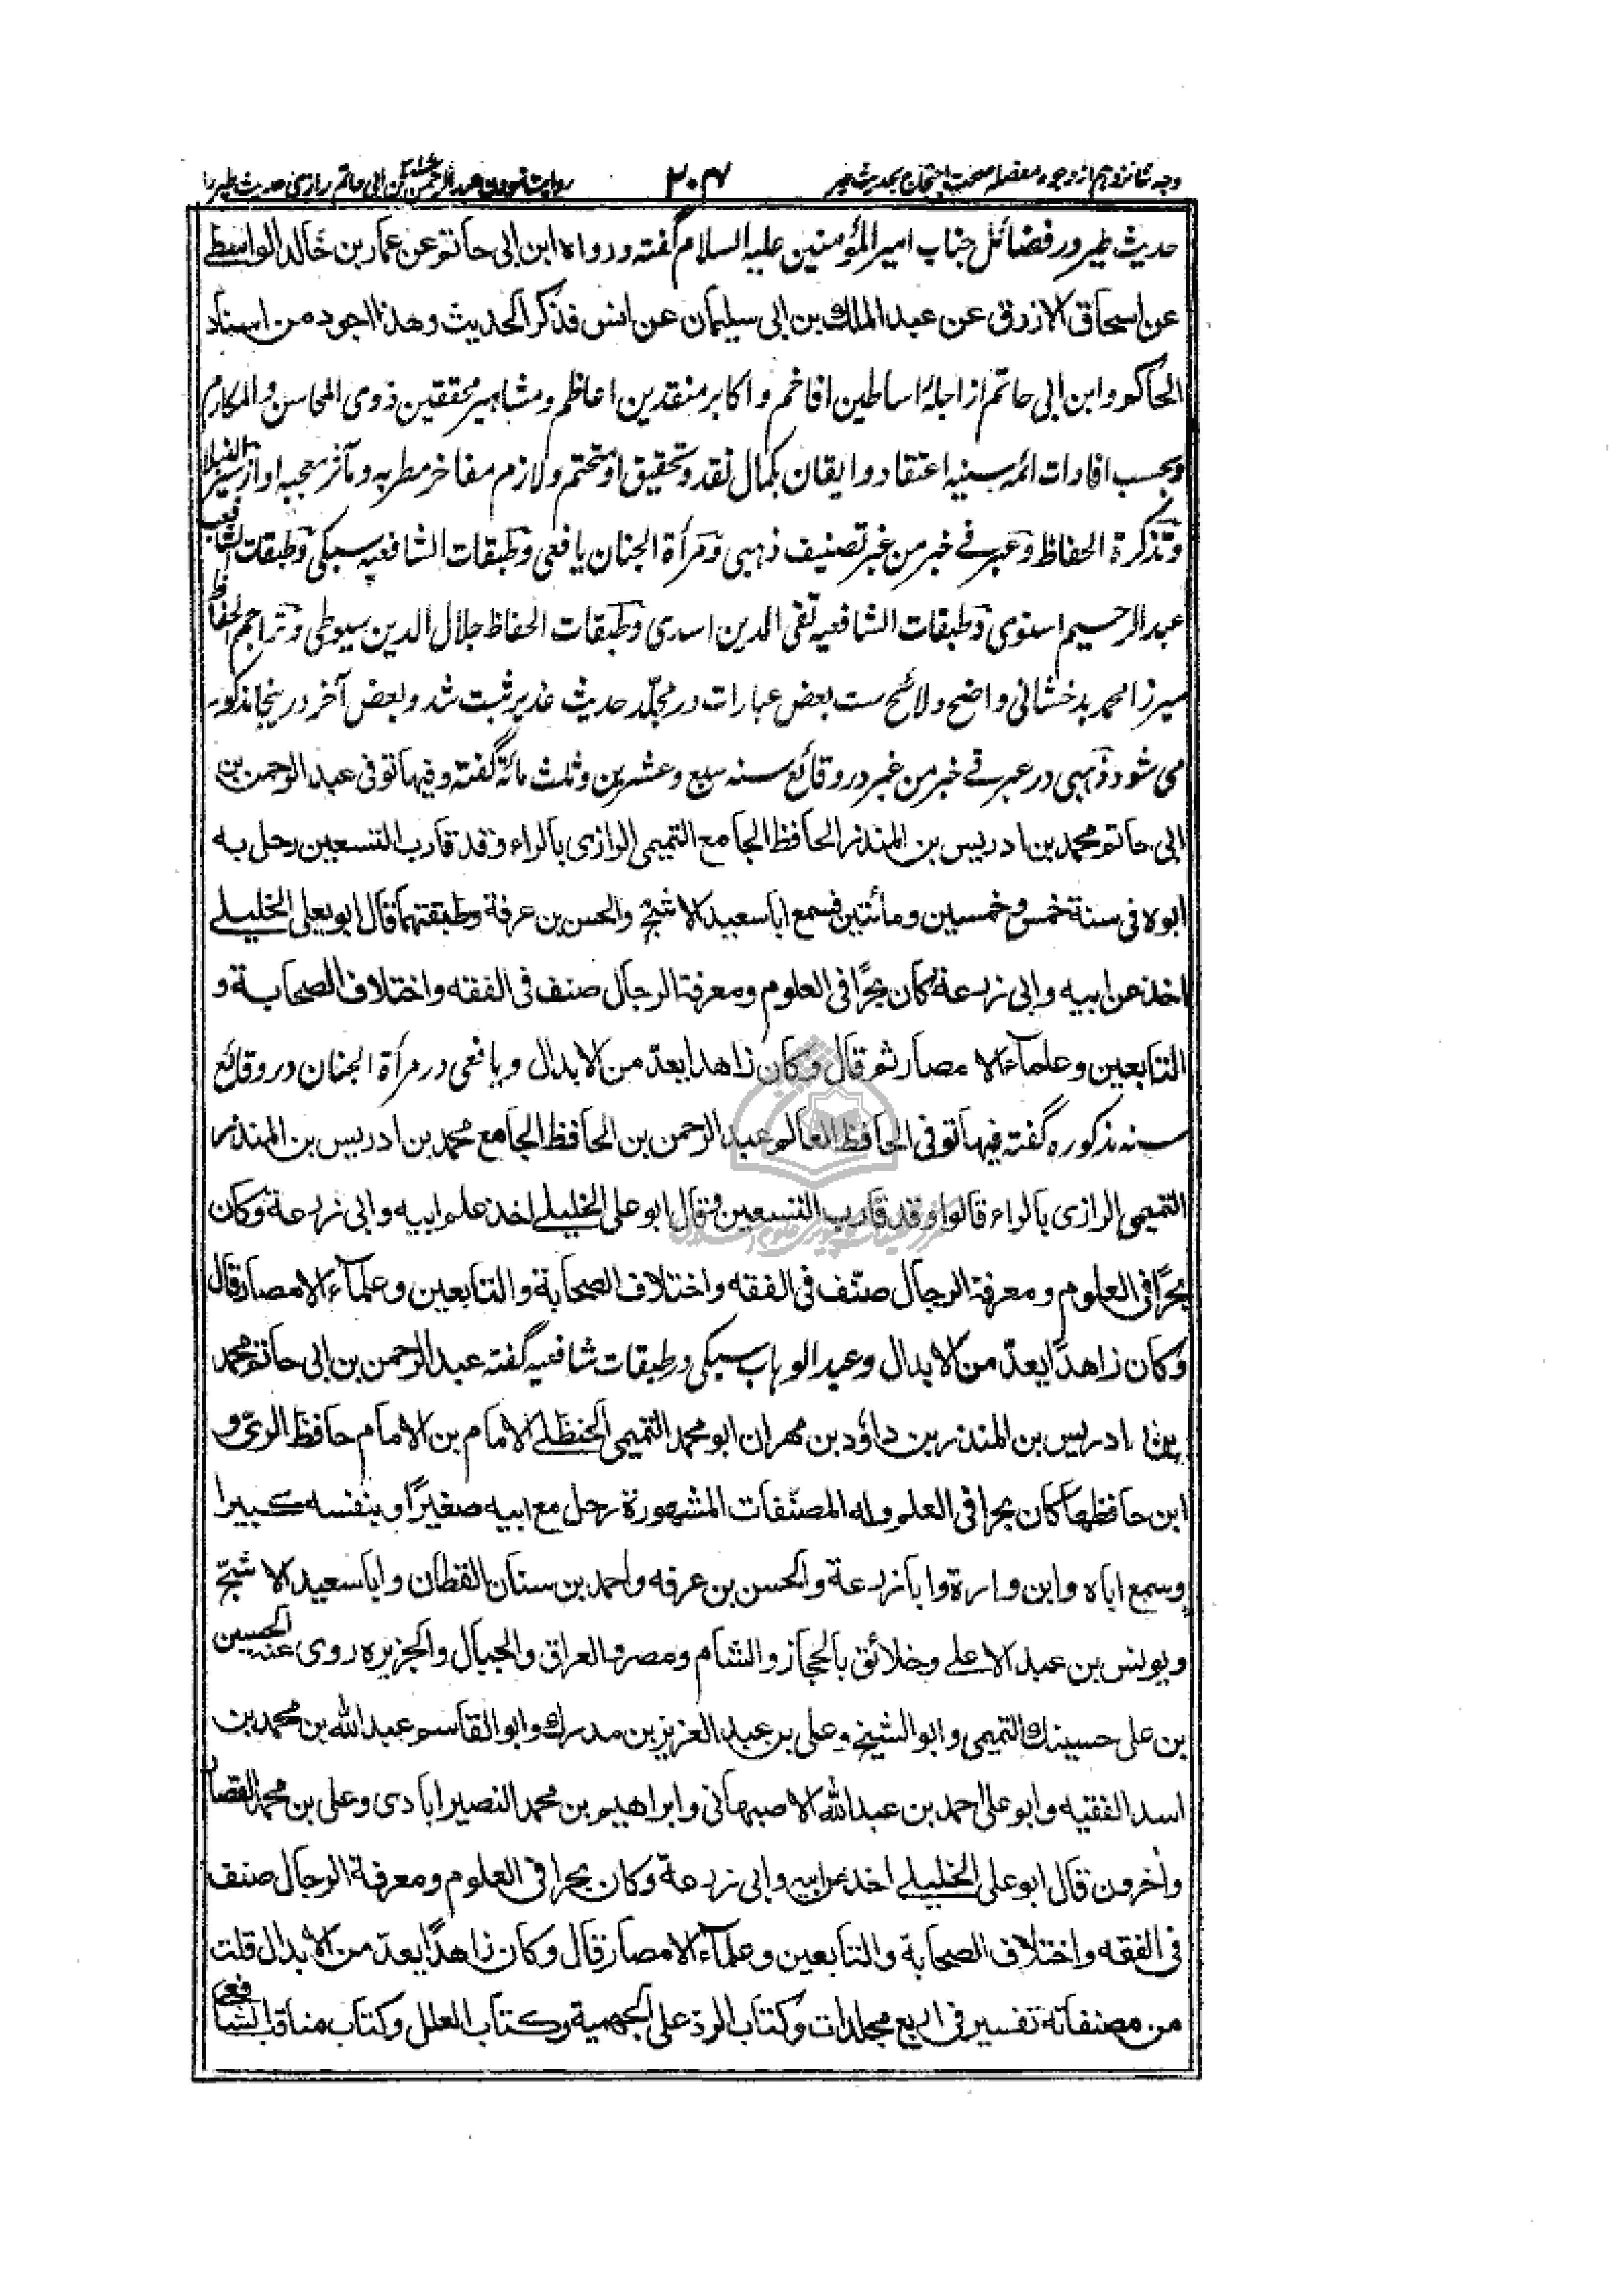 وجه شانزدهم از وجوه مفصله صحت احتجاج بحدیث طیر
۲۰۴
روایت نمودن عبد الرحمن بن ابی حاتم رازی حدیث طیر را
حدیث طیر در فضائل جناب امیر المؤمنین علیه السلام گفته و رواه ابن ابی حاتم عن عمار بن خالد الواسطی
عن اسحاق الازرق عن عبد الملك بن ابی سلیمان عن انس فذکر الحدیث وهذا اجود من اسناد
الحاکم و ابن ابی حاتم از اجلهٔ اساطین افاخم و اکابر منقدین اعاظم و مشاهیر محققین ذوی المحاسن و المکارم
و بحسب افادات ائمه سنیه اعتقاد و ایقان بکمال نقد و تحقیق او متحتم و لازم مفاخر مطربه و مآثر معجبه او از سیر النبلا
و تذکرة الحفاظ و عبر فی خبر من غبر تصنیف ذهبی و مرأة الجنان یافعی و طبقات الشافعیه سبکی و طبقات الشافعیه
عبد الرحیم اسنوی و طبقات الشافعیه تقی الدین اسدی و طبقات الحفاظ جلال الدین سیوطی و تراجم الحفاظ
میرزا محمد بدخشانی واضح و لائح ست بعض عبارات در مجلّد حدیث غدیر ثبت شد و بعض آخر درینجا مذکور
می شود ذهبی در عبر فی خبر من غبر در وقائع سنه سبع و عشرین و ثلث مائة گفته و فیها توفی عبد الرحمن بن
ابی حاتم محمد بن ادریس بن المنذر الحافظ الجامع التمیمی الرازی بالراء و قد قارب التسعین رحل به
ابوه فی سنة خمس و خمسین و مائتین فسمع ابا سعید الاشج والحسن بن عرفة وطبقتهما قال ابو یعلی الخلیلی
اخذ عن ابیه و ابی زرعة کان بحرًا فی العلوم و معرفة الرجال صنف فی الفقه و اختلاف الصحابة و
التابعین و علمآء الامصار ثم قال و کان زاهدا یعدّ من الابدال و یافعی در مرأة الجنان در وقائع
سنه مذکوره گفته فیها توفی الحافظ العالم عبد الرحمن بن الحافظ الجامع محمد بن ادریس بن المنذر
التمیمی الرازی بالراء قالوا و قد قارب التسعین و قال ابو علی الخلیلی اخذ علم ابیه و ابی زرعة و کان
بحرًا فی العلوم و معرفة الرجال صنّف فی الفقه و اختلاف الصحابة و التابعین و علمآء الامصار قال
و کان زاهدًا یعدّ من الابدال و عبد الوهاب سبکی در طبقات شافعیه گفته عبد الرحمن بن ابی حاتم محمد
بن ادریس بن المنذر بن داؤد بن مهران ابو محمد التمیمی الحنظلی الامام بن الامام حافظ الریّ و
ابن حافظها کان بحرا فی العلم و له المصنّفات المشهورة رحل مع ابیه صغیرًا و بنفسه کبیرا
وسمع اباه و ابن وارة و ابا زرعة و الحسن بن عرفه و احمد بن سنان القطان و ابا سعید الاشجّ
و یونس بن عبد الاعلی و خلائق بالحجاز و الشام و مصر و العراق و الجبال و الجزیره روی عنه الحسین
بن علی حسینك التمیمی و ابو الشیخ و علی بن عبد العزیز بن مدرك و ابو القاسم عبد الله بن محمد بن
اسد الفقیه و ابو علی احمد بن عبد الله الاصبهانی و ابراهیم بن محمد النصیرابادی و علی بن محمد القصار
و آخرون قال ابو علی الخلیلی اخذ عن ابیه و ابی زرعة و کان بحرا فی العلوم و معرفة الرجال صنف
فی الفقه و اختلاف الصحابة و التابعین و علمآء الامصار قال و کان زاهدًا یعدّ من الابدال قلت
من مصنفاته تفسیر فی اربع مجلدات و کتاب الرد علی الجهمیة و کتاب العلل و کتاب مناقب الشافعی